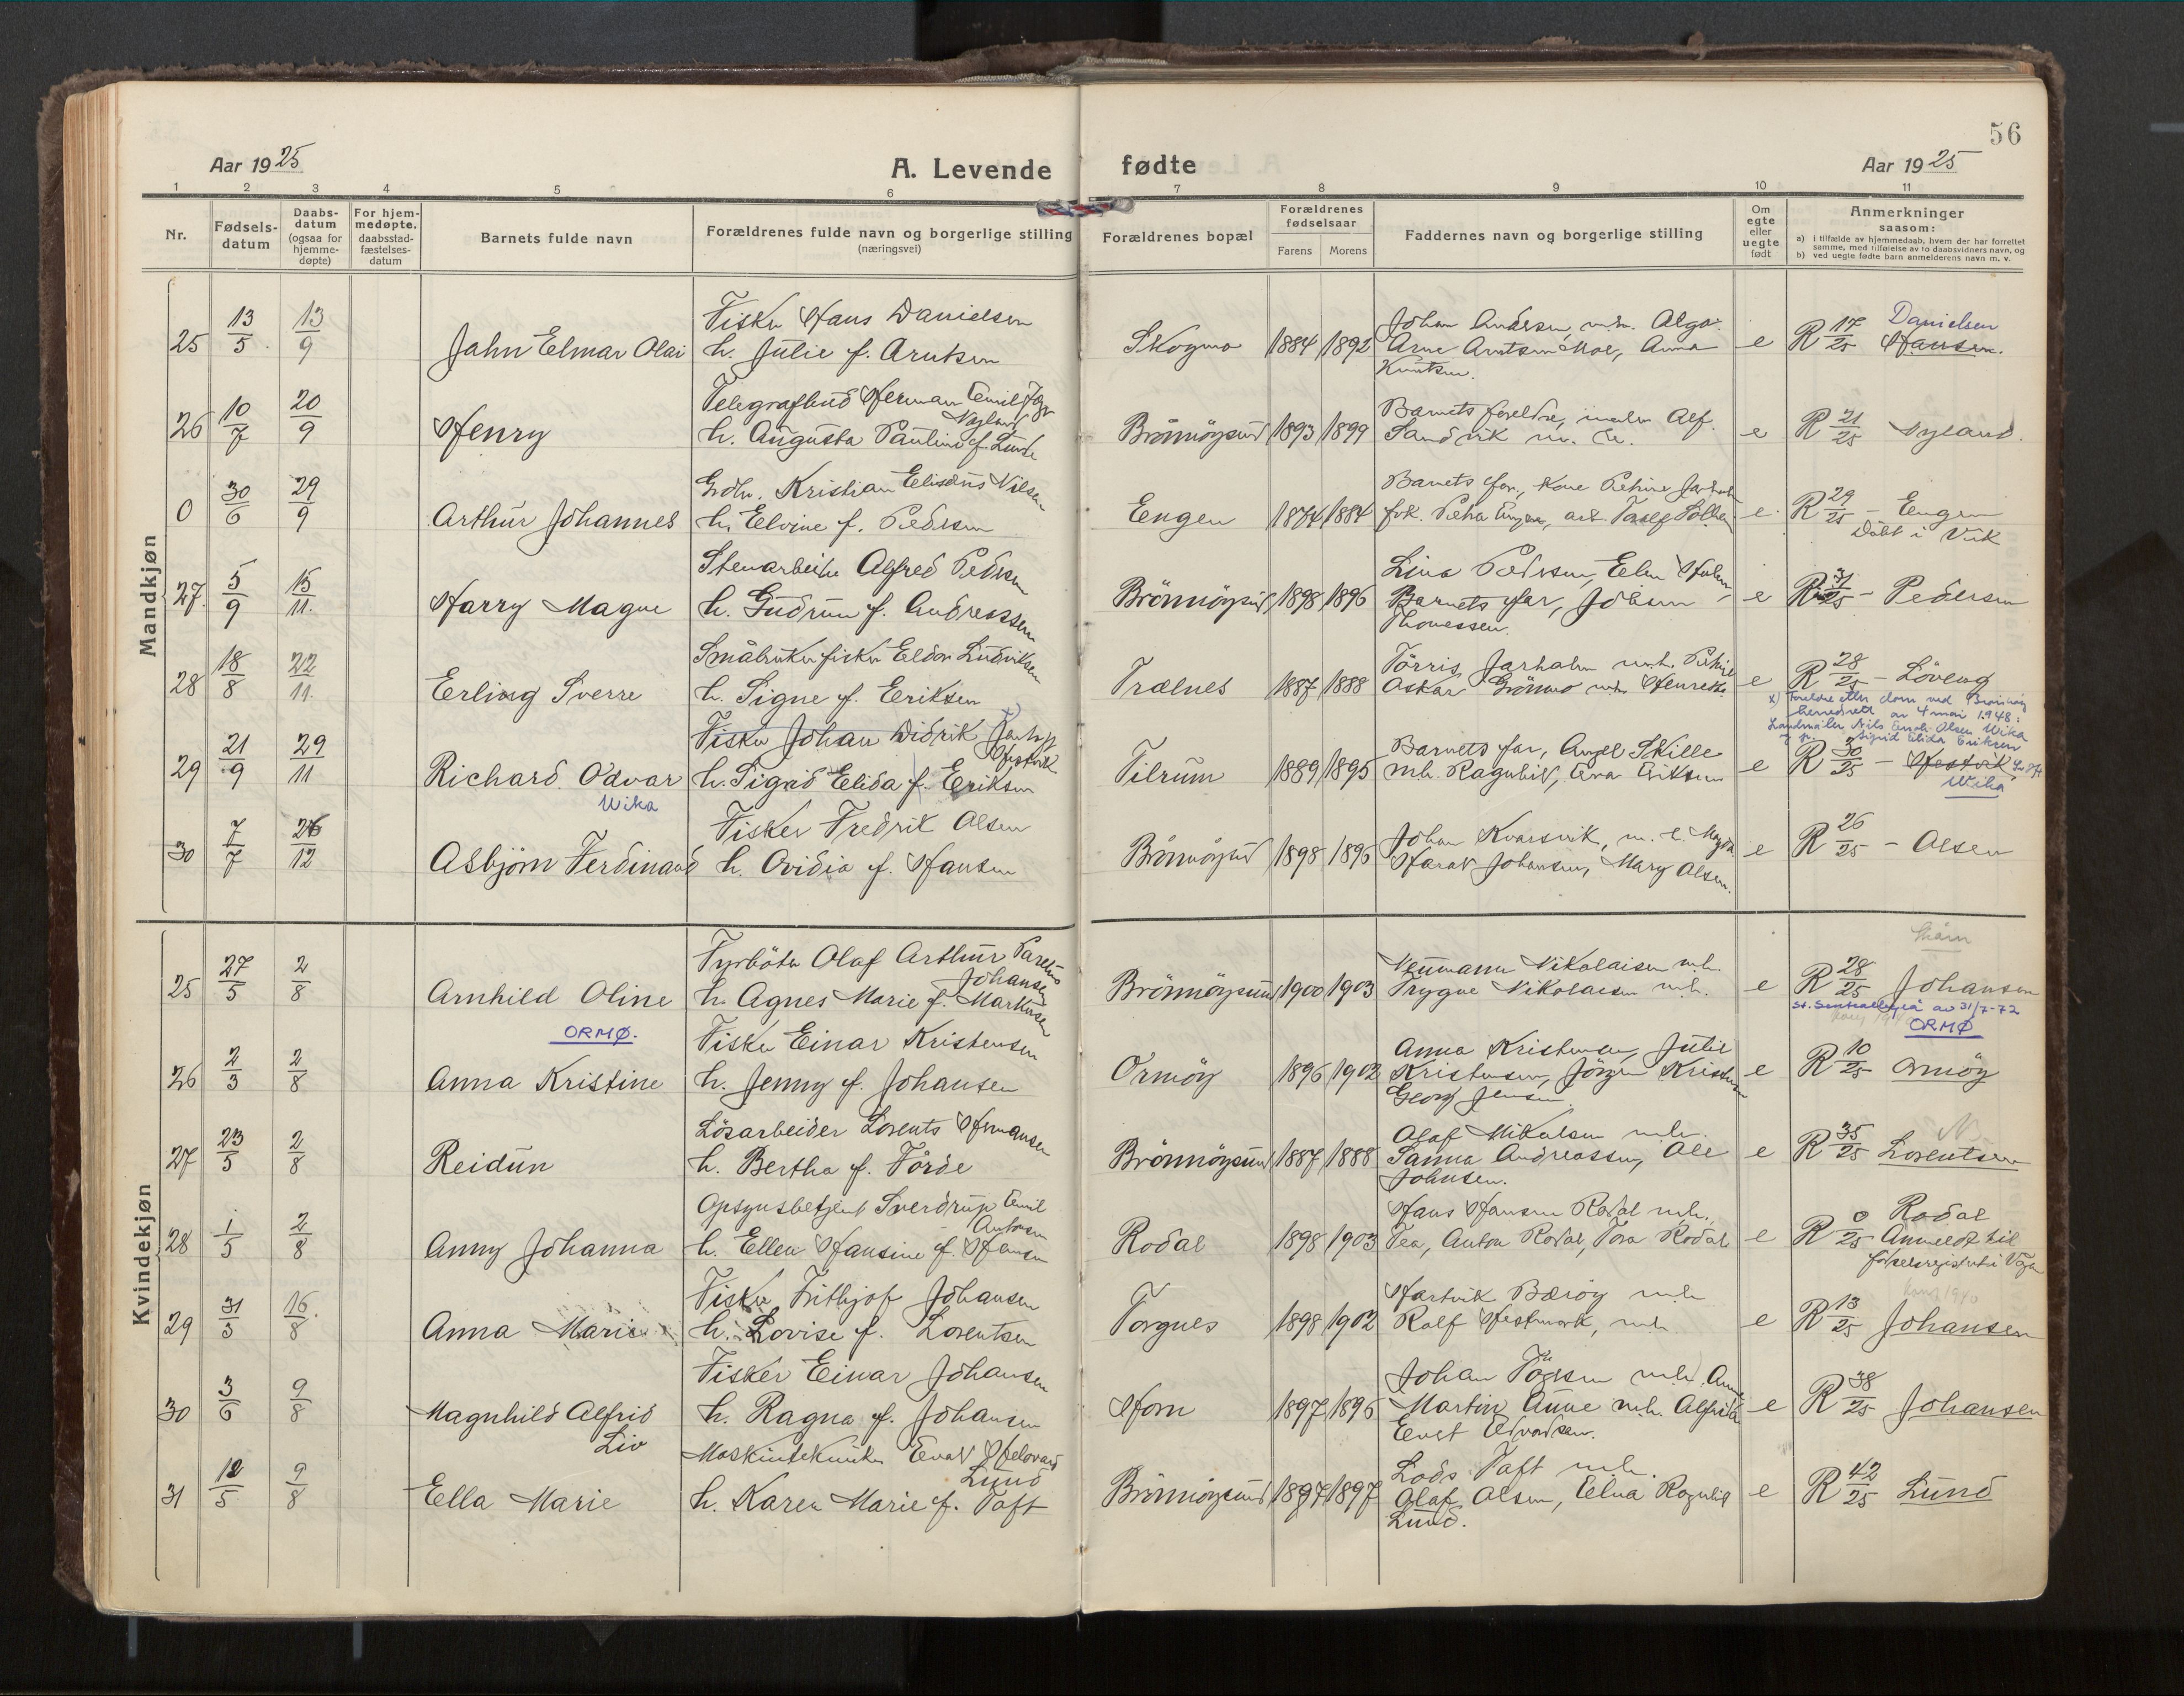 56
Aar 1925
A. Levende fødte
Aar 1925
1 2 3 4 5 6 7 8 9 10 11
Nr.
Fødsels-
datum
Daabs-
datum
(ogsaa for
hjemme-
døpte)
For hjem-
medøpte,
daabsstad-
fæstelses-
datum
Barnets fulde navn
Forældrenes fulde navn og borgerlige stilling
(næringsvei)
Forældrenes bopæl
Forældrenes
fødselsaar
Farens Morens
Faddernes navn og borgerlige stilling
Om
egte
eller
uegte
født
Anmerkninger
saasom:
a) i tilfælde av hjemmedaab, hvem der har forrettet
samme, med tilføielse av to daabsvidners navn, og
b) ved uegte fødte barn anmelderens navn m. v.
Mandkjøn
25 13/5 13/9 Jahn Elmar Olai
Fisker Hans Danielsen
h. Julie f. Arntsen
Skogmo 1884 1892
Johan Andersen, m.h. Alga
Arne Arntsen Moe, Anna
Knutsen.
e R 17/25 Hansen.
Danielsen
26 10/7 20/9 Henry
Telegrafbud Herman Emil
Nyland
h. Augusta Pauline f. Lunde
Brönnöysund 1893 1899
Barnets foreldre, maler Alf
Sandvik m. h.
e R 21/25 Nyland.
0 30/6 29/9 Arthur Johannes
Grdbr. Kristian Elisæus Nilsen
h. Elvine f. Pedersen
Engen 1874 1884
Barnets far, Kone Petrine
frk. Petra Engen, arb.
e R 29/25 - Engen
Döbt i Vik
27 5/9 15/11 Harry Magne
Stenarbeider Alfred Pedersen
h. Gudrun f. Andreassen
Brönnöysund 1898 1896
Lina Pedersen, Elen
Barnets far, Johan
Thomessen.
e R 31/25 - Pedersen
28 18/8 22/11 Erling Sverre
Småbruker fisker Eldor Ludviksen
h. Signe f. Eriksen
Trælnes 1887 1888
Törris Jarholm m.h. Petrine
Oskar Grönmo m.h. Henrette
e R 28/25 - Löveng
x) Foreldre etter dom ved Brönnöy
herredsrett av 4 mai 1948:
Landmåler Nils Olsen Wika
og Sigrid Elida Eriksen
29 21/9 29/11 Richard Odvar
Wika
Fisker Johan Didrik
Hestvik
h. Sigrid Elida f. Eriksen
Tilrum 1889 1895
Barnets far, Angel Skille
m.h. Ragnhild, Eva Eriksen
e R 30/25 - Hestvik
Wika
30 7/7 26/12 Asbjörn Ferdinand
Fisker Fredrik Olsen
h. Ovidia f. Hansen
Brönnöysund 1898 1896
Johan Kvarsvik, m. h. Magda
Harald Johansen, Mary Olsen.
e R 26/25 - Olsen
Kvindekjøn
25 27/5 2/8 Arnhild Oline
Fyrböter Olaf Arthur Parelius
Johansen
h. Agnes Marie f. Markussen
Brönnöysund 1900 1903
Neumann Nikolaisen m.h.
Trygve Nikolaisen m.h.
e R 28/25 Johansen
26 2/3 2/8 Anna Kristine
ORMØ.
Fisker Einar Kristensen
h. Jenny f. Johansen
Ormöy 1896 1902
Anna Kristensen, Julie
Kristensen, Jörgen Kristensen
Georg Jensen
e R 10/25 Ormöy
av 31/7-72
ORMØ
27 23/5 2/8 Reidun
Lösarbeider Lorents Hermansen
h. Bertha f. Förde
Brönnöysund 1887 1888
Olaf Mikalsen m.h.
Sanna Andreassen, Ole
Johnsen.
e R 35/25 Lorentsen
28 1/5 2/8 Anny Johanna
Opsynsbetjent Sverdrup Emil
Antonsen
h. Ellen Hansine f. Hansen
Rodal 1898 1903
Hans Hansen Rodal m.h.,
Tea, Anton Rodal, Tora Rodal
e R 0/25 Rodal
Anmeldt til
fødselsregistret i Vega
29 31/3 16/8 Anna Marie
Fisker Frithjof Johansen
h. Lovise f. Lorentsen
Torgnes 1898 1902
Hartvik Bæröy m.h.
Rolf Hestmark, m.h.
e R 13/25 Johansen
30 3/6 9/8 Magnhild Alfrid
Liv
Fisker Einar Johansen
h. Ragna f. Johansen
Horn 1897 1896
Johan m.h. Anna
Martin Aune m.h. Alfrida
Enst Edvardsen.
e R 38/25 Johansen
31 12/5 9/8 Ella Marie
Maskintekniker Evald
Lund
h. Karen Marie f. Toft
Brönnöysund 1897 1897
Lods Toft m.h.
Olaf Olsen, Elna Ragnhild
Lund.
e R 42/25 Lund